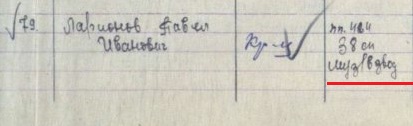 79. Ларионов Павел
Иванович
Кр-ц
пп. 424
38 сп
муз/взвод